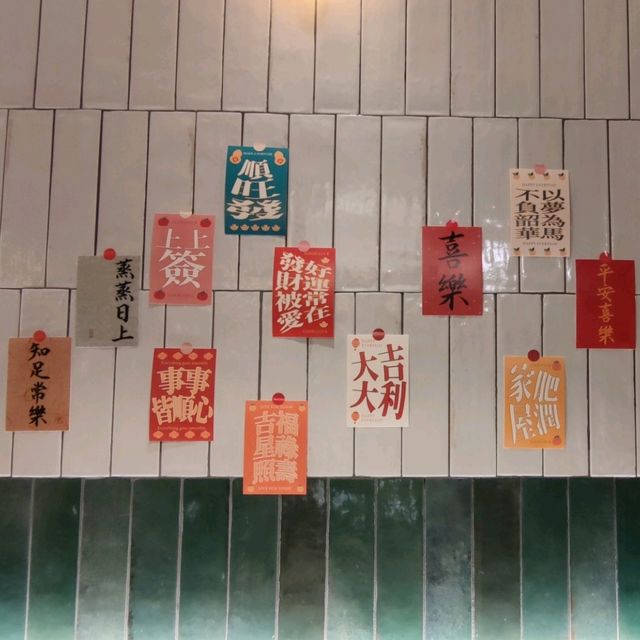 知足常樂
蒸蒸日上
上上簽
事事
皆順心
順旺發
福祿壽
吉星照
好運常在
發財被愛
大吉
大利
喜樂
以夢為馬
不負韶華
肥潤
家屋
平安喜樂